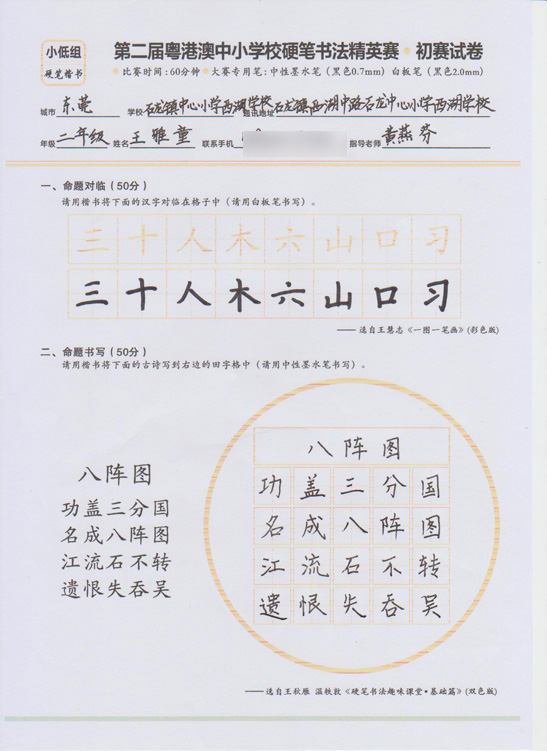 小低组
硬笔楷书
第二届粤港澳中小学校硬笔书法精英赛·初赛试卷
●比赛时间:60分钟●大赛专用笔:中性墨水笔(黑色0.7mm)白板笔(黑色2.0mm)
城市 东莞 学校 石龙镇中心小学西湖学校 通讯地址 石龙镇西湖中路石龙中心小学西湖学校
年级 二年级 姓名 王雅童 联系手机 指导老师 黄燕芬
一、命题对临(50分)
请用楷书将下面的汉字对临在格子中(请用白板笔书写)。
三十人木六山口习
三十人木六山口习
——选自王慧志《一图一笔画》(彩色版)
二、命题书写(50分)
请用楷书将下面的古诗写到右边的田字格中(请用中性墨水笔书写)。
八阵图
功盖三分国
名成八阵图
江流石不转
遗恨失吞吴
八阵图
功盖三分国
名成八阵图
江流石不转
遗恨失吞吴
——选自王秋雁 温轶敦《硬笔书法趣味课堂·基础篇》(双色版)